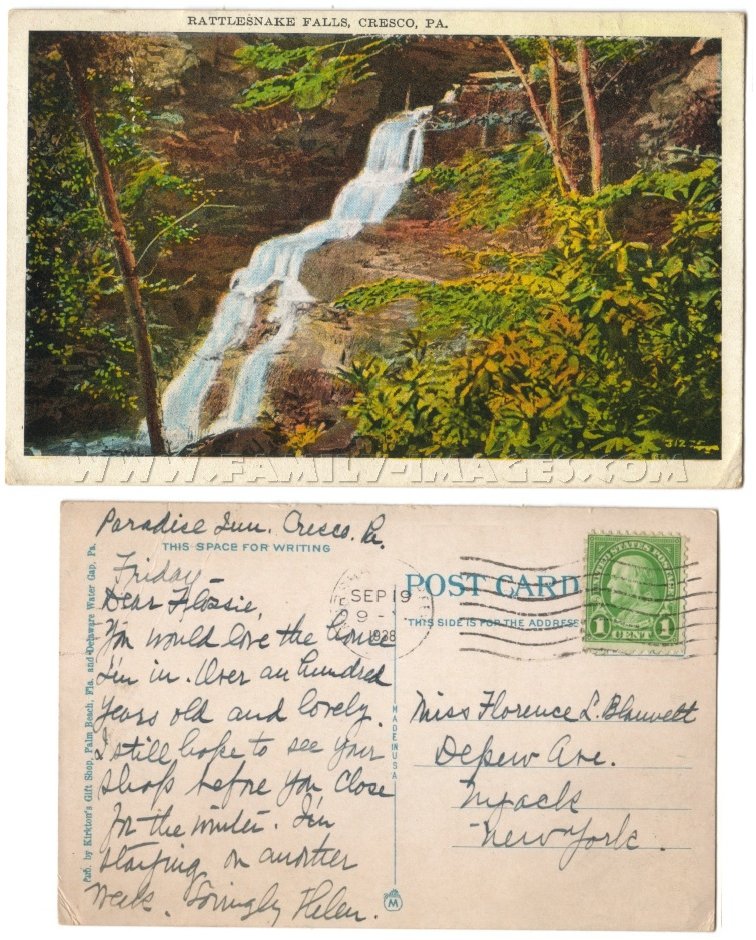 RATTLESNAKE FALLS, CRESCO, PA.
31275
WWW.FAMILY-IMAGES.COM
Paradise Inn. Cresco, Pa.
THIS SPACE FOR WRITING
Friday—
Dear Flossie,
You would love the house
I'm in. Over an hundred
years old and lovely.
I still hope to see your
shop before you close
for the winter. I'm
staying on another
week. Lovingly Helen.
Pub. by Kirkton's Gift Shop, Palm Beach, Fla. and Delaware Water Gap, Pa.
MADE IN USA
M
SEP 19
9 -
1928
POST CARD
THIS SIDE IS FOR THE ADDRESS
UNITED STATES POSTAGE
1 CENT 1
Miss Florence L. Blauvelt
Depew Ave.
Nyack
New York.